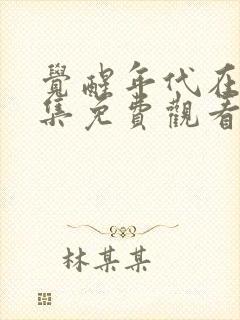 覺醒年代在
集免費觀看
林某某